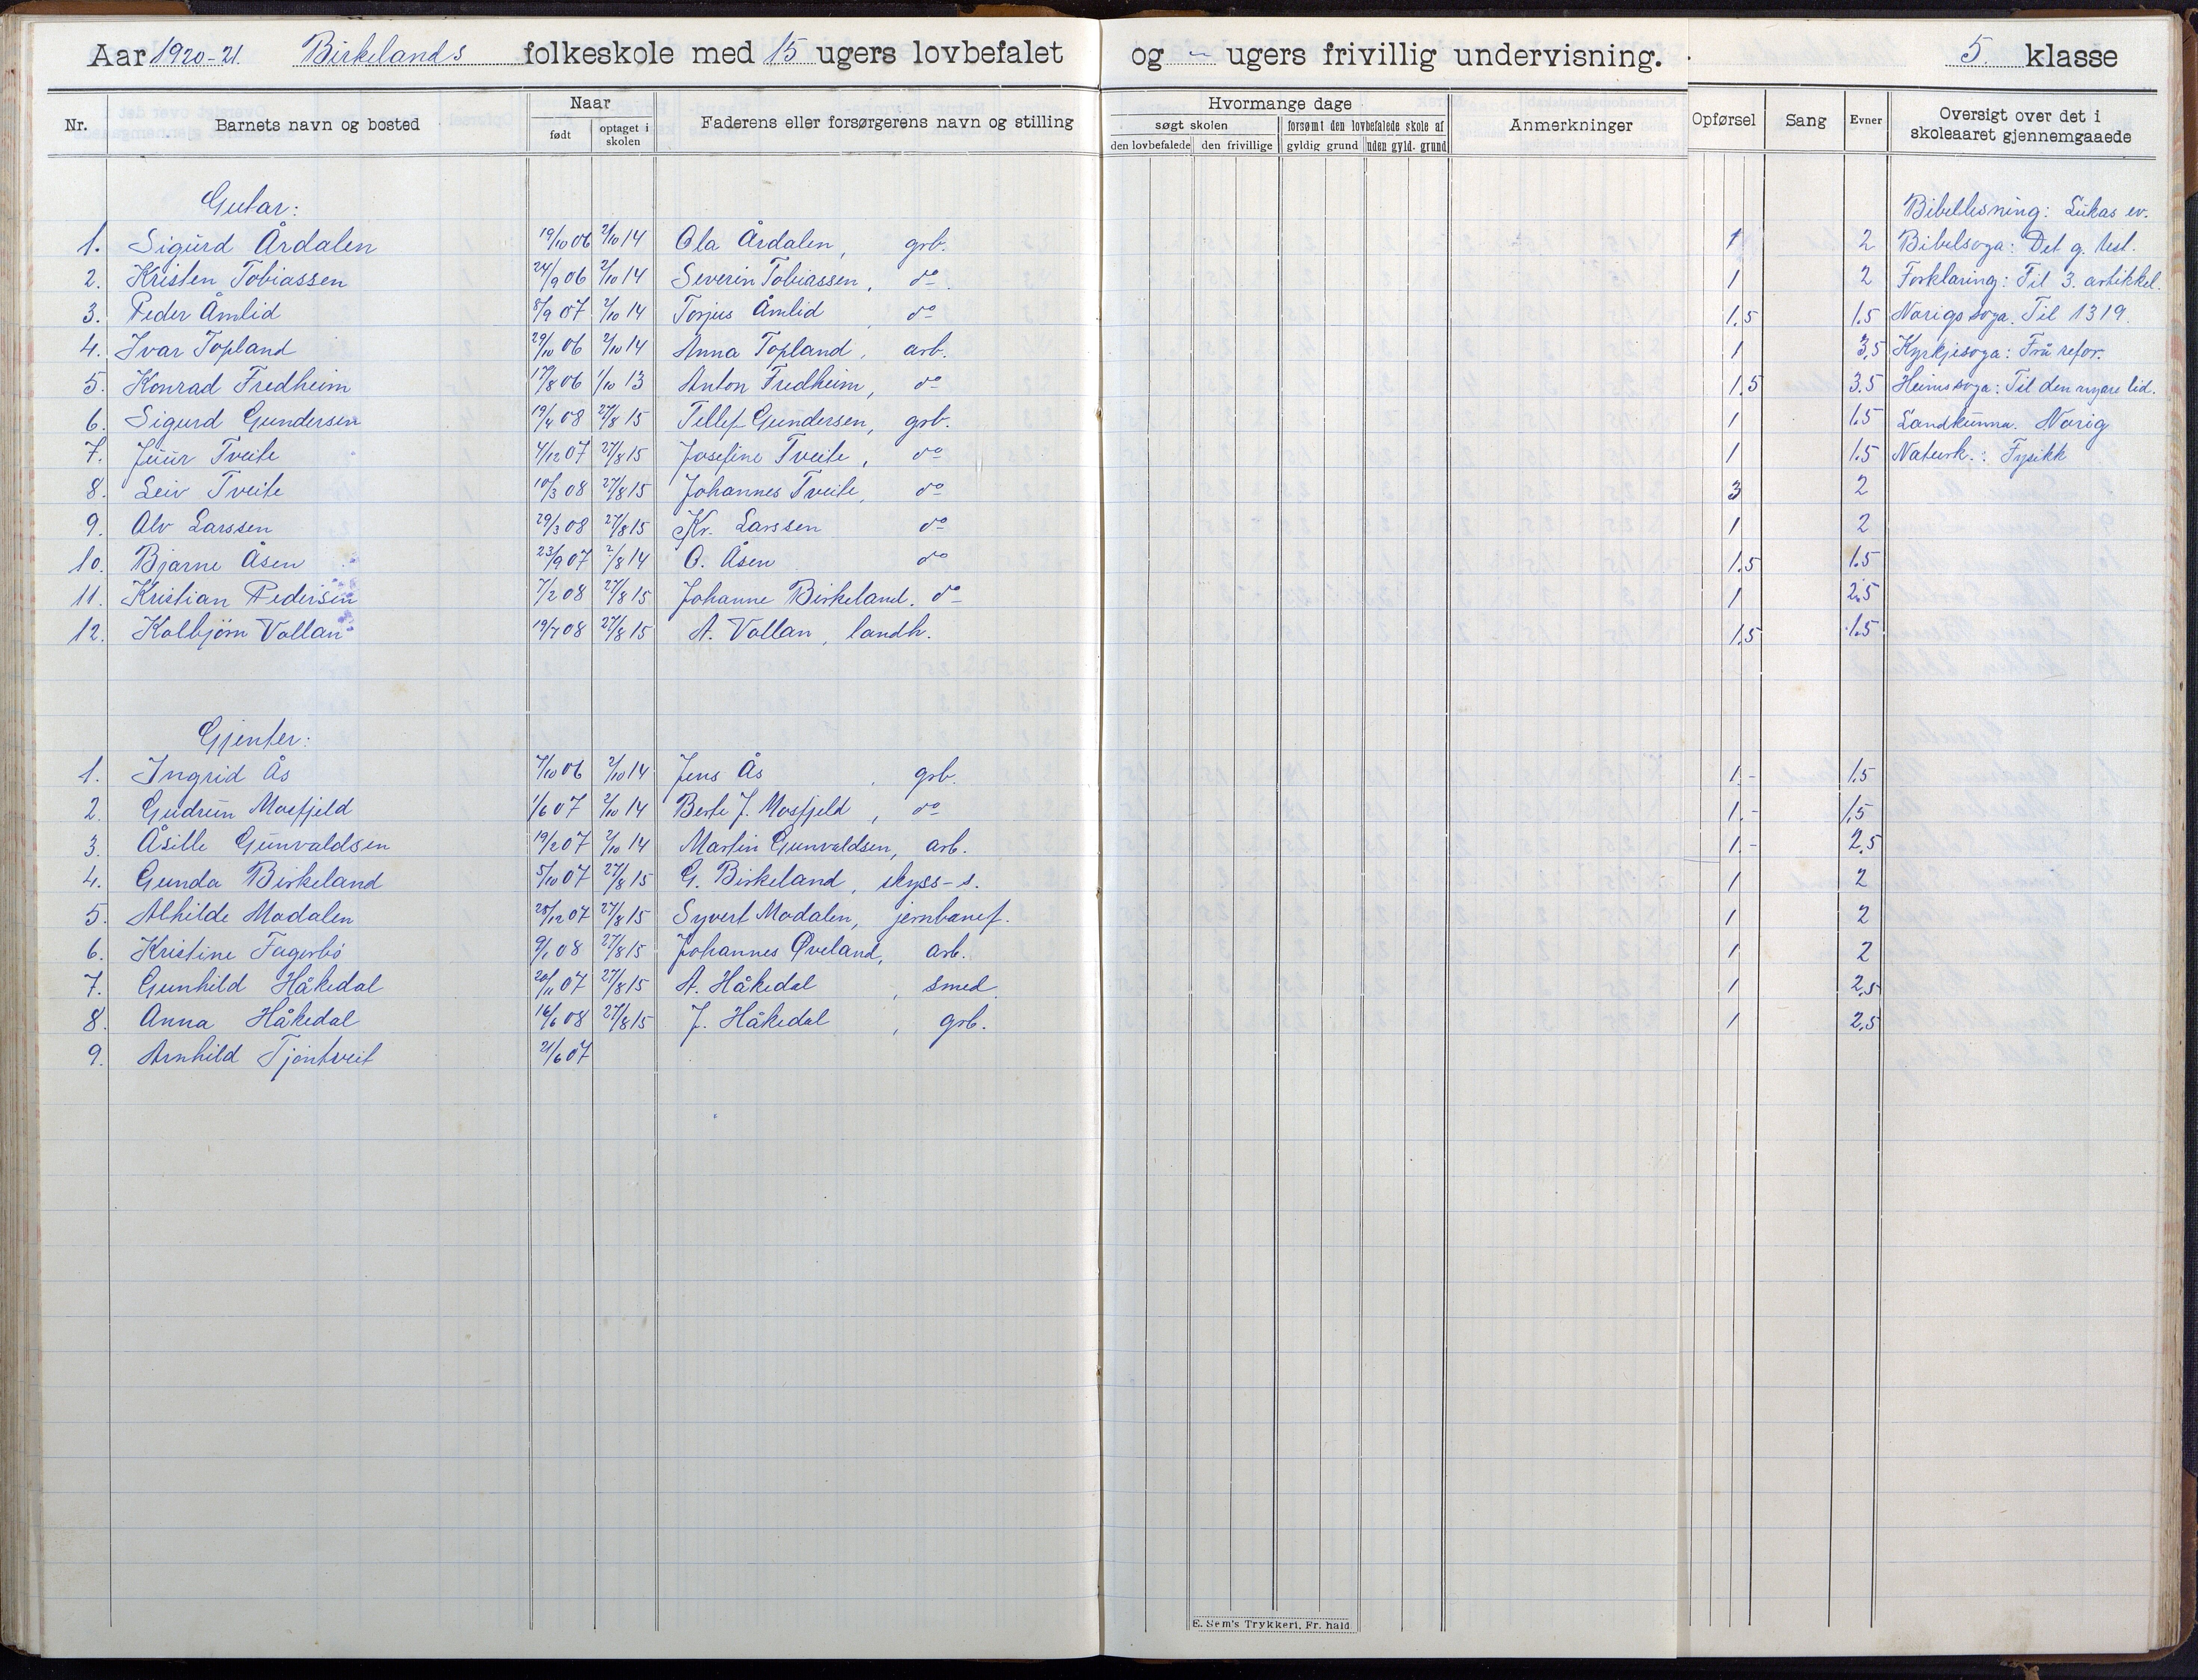 Aar 1920-21. Birkelands folkeskole med 15 ugers lovbefalet og - ugers frivillig undervisning. 5. klasse
Nr. Barnets navn og bosted Naar Faderens eller forsørgerens navn og stilling Hvormange dage Anmerkninger Opførsel Sang Evner Oversigt over det i skoleaaret gjennemgaaede
født optaget i skolen søgt skolen forsømt den lovbefalede skole af
den lovbefalede den frivillige gyldig grund uden gyld. grund
Gutar: Bibellesning: Lukas ev.
1. Sigurd Årdalen 19/10 06 2/10 14 Ola Årdalen, grb. 1 2 Bibelsoga: Det g. test.
2. Kristen Tobiassen 24/9 06 2/10 14 Severin Tobiassen, do 1 2 Forklaring: Til 3. artikkel.
3. Peder Åmlid 8/9 07 2/10 14 Torjus Åmlid, do 1,5 1.5 Norigs soga. Til 1319.
4. Ivar Topland 29/10 06 2/10 14 Anna Topland, arb. 1 3,5 Kyrkjesoga: Frå refor.
5. Konrad Fredheim 17/8 06 1/10 13 Anton Fredheim, do 1,5 3.5 Heimssoga: Til den nyare tid.
6. Sigurd Gundersen 19/4 08 27/8 15 Tellef Gundersen, grb. 1 1.5 Landkunna. Norig
7. Juur Tveite 4/12 07 27/8 15 Josefine Tveite, do 1 1.5 Naturk.: Fysikk
8. Leiv Tveite 10/3 08 27/8 15 Johannes Tveite, do 3 2
9. Alv Larssen 29/3 08 27/8 15 Kr. Larssen do 1 2
10. Bjarne Åsen 23/9 07 2/8 14 O. Åsen do 1.5 1.5
11. Kristian Pedersen 7/2 08 27/8 15 Johanne Birkeland. do 1 2.5
12. Kolbjørn Vollan 19/7 08 27/8 15 A. Vollan, landh. 1,5 1.5
Gjenter:
1. Ingrid Ås 7/10 06 2/10 14 Jens Ås, grb. 1.- 1.5
2. Gudrun Mosfjeld 1/6 07 2/10 14 Berte J. Mosfjeld, do 1.- 1,5
3. Åsille Gunvaldsen 19/2 07 2/10 14 Martin Gunvaldsen, arb. 1.- 2,5
4. Gunda Birkeland 5/10 07 27/8 15 G. Birkeland, skyss-s. 1 2
5. Alhilde Modalen 28/12 07 27/8 15 Syvert Modalen, jernbanef. 1 2
6. Kristine Fagerbø 9/1 08 27/8 15 Johannes Øveland, arb. 1 2
7. Gunhild Håkedal 20/11 07 27/8 15 A. Håkedal, smed 1 2,5
8. Anna Håkedal 16/6 08 27/8 15 J. Håkedal, grb. 1 2,5
9. Arnhild Tjöntveit 21/6 07
E. Sem's Trykkeri, Fr. hald